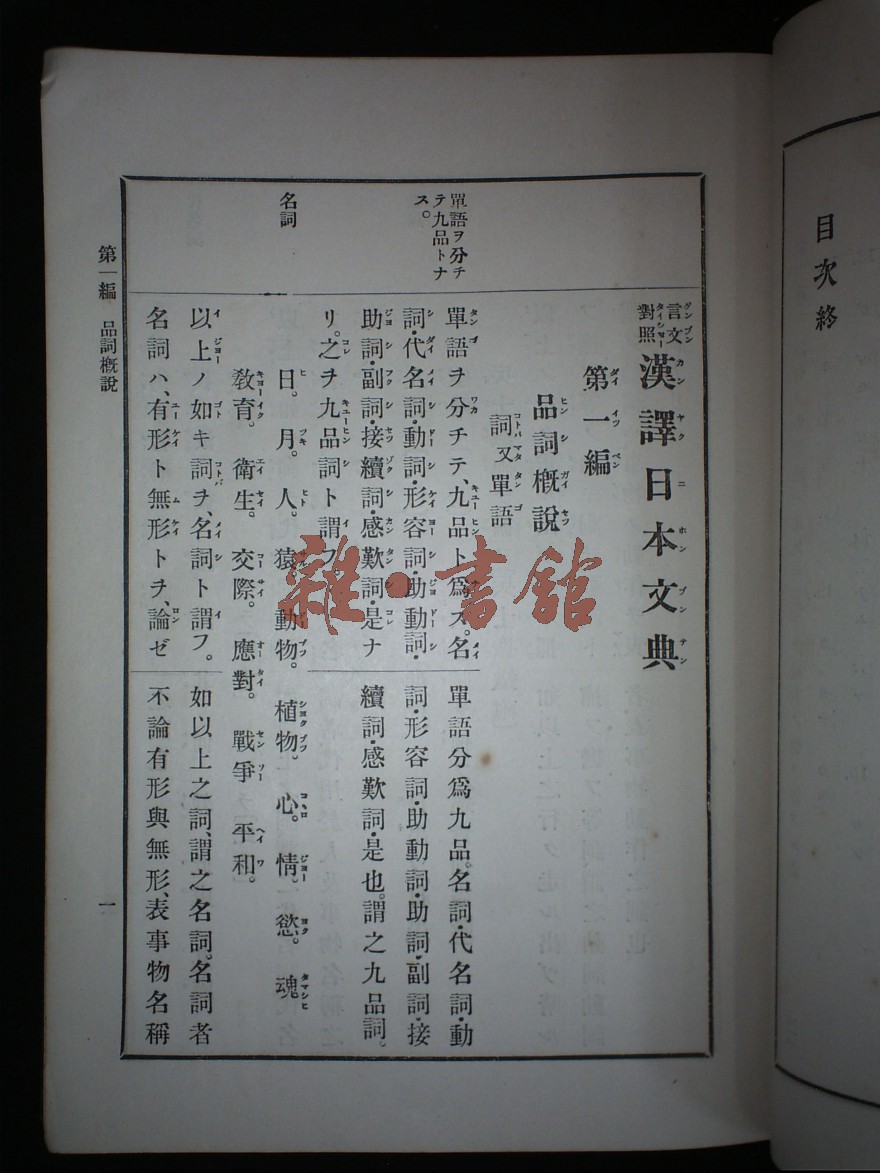 目次終
言文
對照
漢譯日本文典
第一編
品詞概說
詞又單語
單語ヲ分チ
テ九品トナ
ス。
單語ヲ分チテ、九品ト爲ス。名
詞・代名詞・動詞・形容詞・助動詞・
助詞・副詞・接續詞・感歎詞・是ナ
リ。之ヲ九品詞ト謂フ。
單語分爲九品。名詞・代名詞・動
詞・形容詞・助動詞・助詞・副詞・接
續詞・感歎詞・是也。謂之九品詞。
名詞
日。月。人。猿。動物。植物。心。情。慾。魂
敎育。衞生。交際。應對。戰爭 平和。
以上ノ如キ詞ヲ、名詞ト謂フ。
名詞ハ、有形ト無形トヲ、論ゼ
如以上之詞、謂之名詞。名詞者
不論有形與無形、表事物名稱
第一編 品詞概說
一
雜・書館